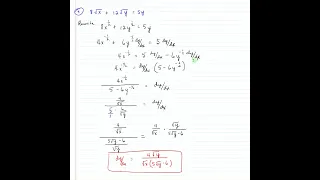 8√x + 12√y = 5y
Rewrite 8x^½ + 12y^½ = 5y
4x^-½ + 6y^-½ dy/dx = 5 dy/dx
4x^-½ = 5 dy/dx - 6y^-½ dy/dx
4x^-½ = dy/dx (5 - 6y^-½)
4x^-½ / (5 - 6y^-½) = dy/dx
(4/√x) / (5/1 - 6/√y) = dy/dx
(4/√x) / ((5√y - 6)/√y) = 4/√x · √y/(5√y - 6)
dy/dx = 4√y / (√x (5√y - 6))